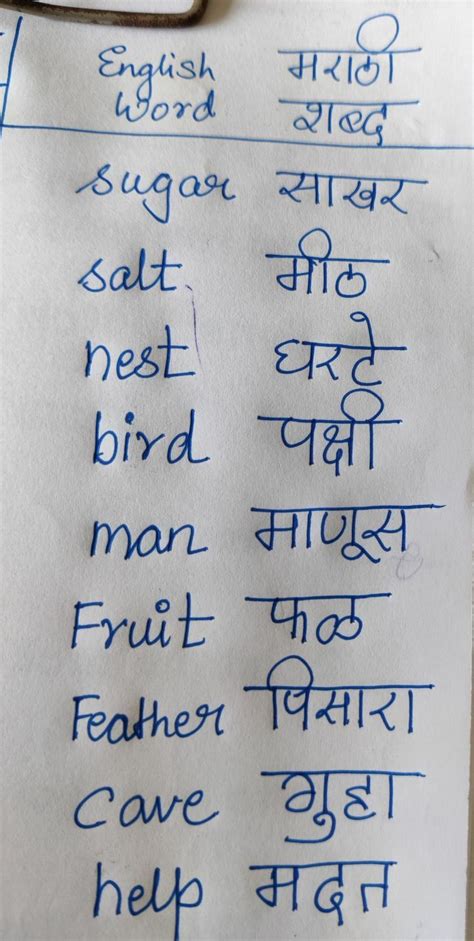 English मराठी
Word शब्द
sugar साखर
salt मीठ
nest घरटे
bird पक्षी
man माणूस
Fruit फळ
Feather पिसारा
Cave गुहा
help मदत